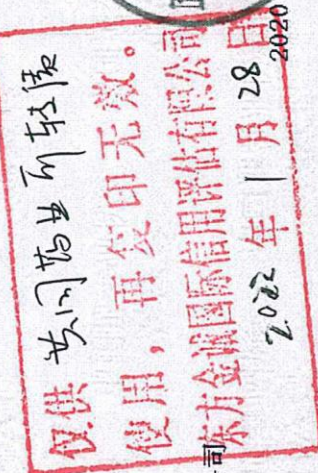 仅供 共同药业可转债
使用，再复印无效。
东方金诚国际信用评估有限公司
2022年1月28日
司
2020